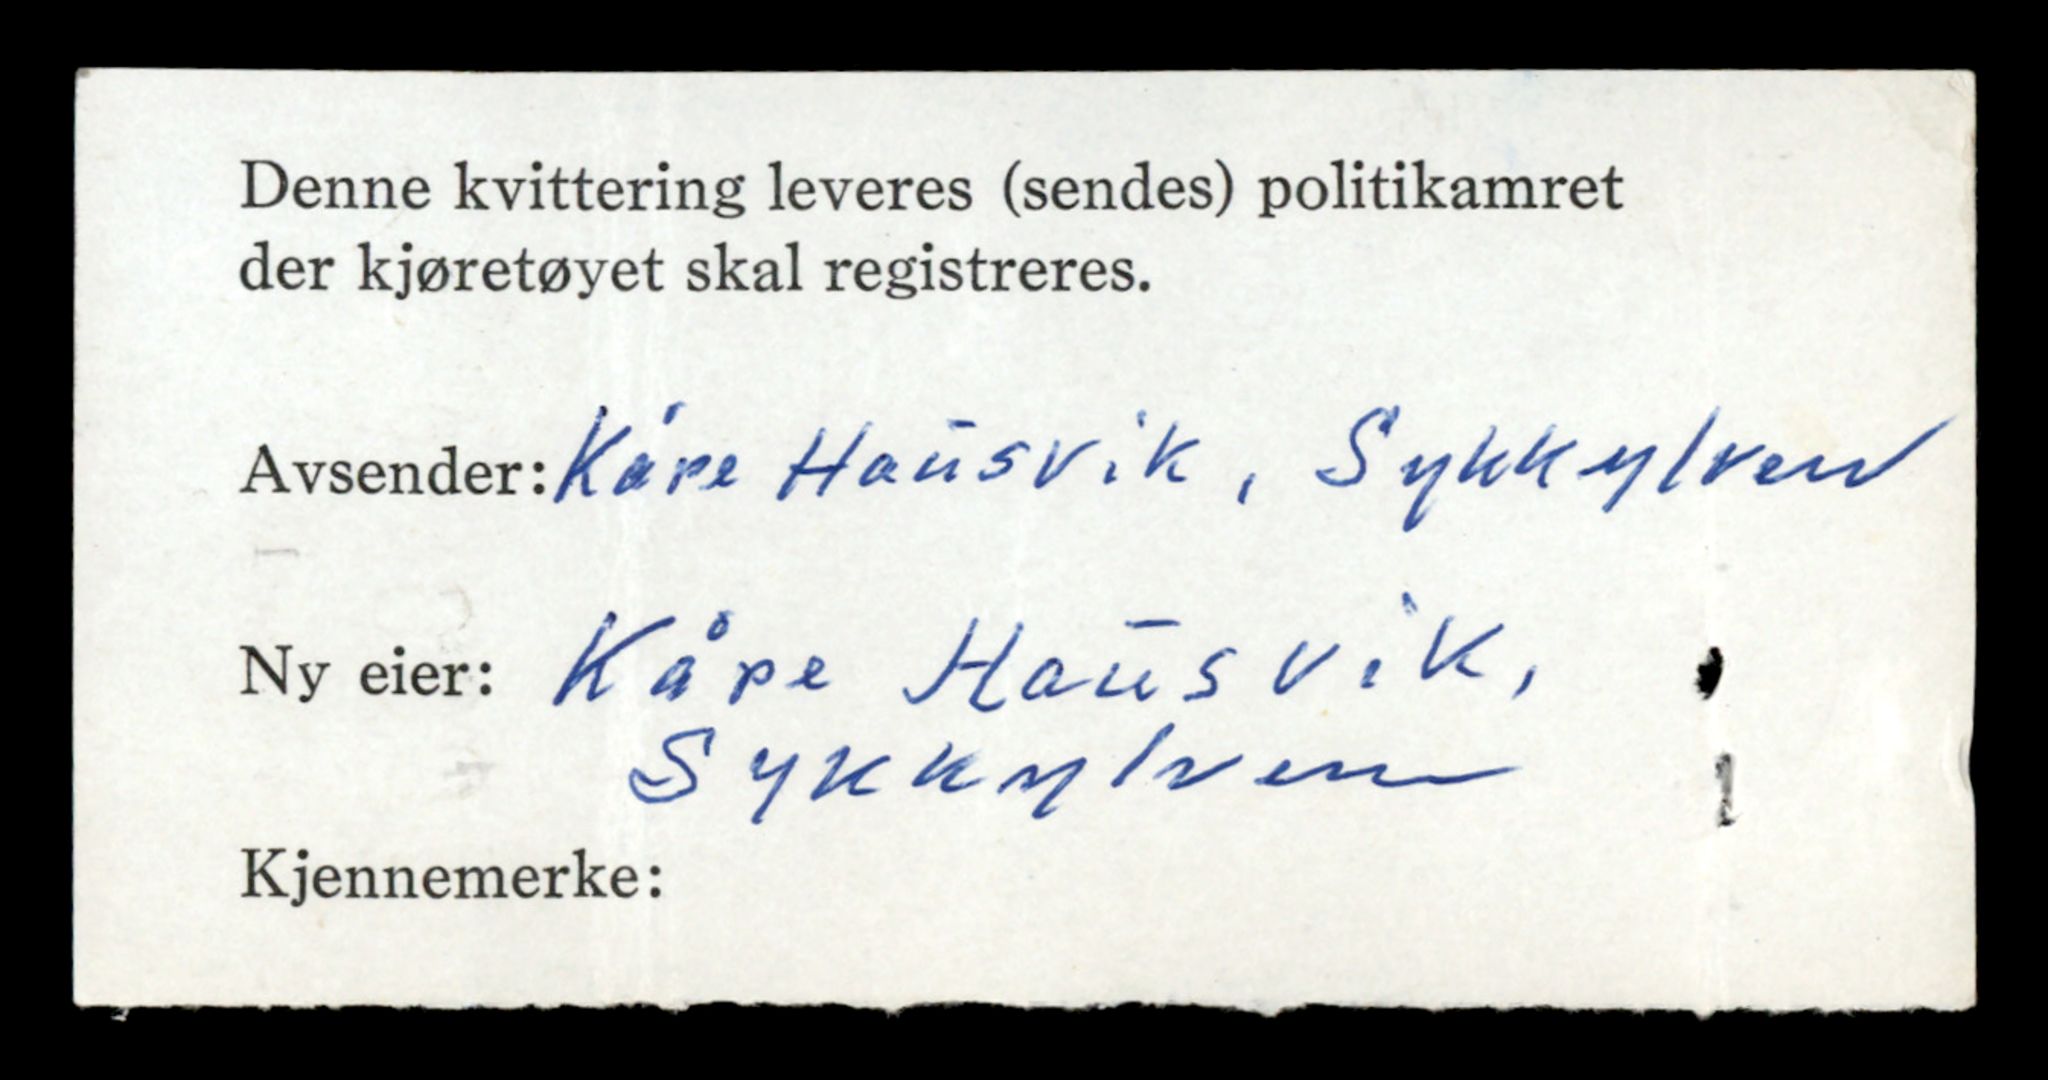 Denne kvittering leveres (sendes) politikamret
der kjøretøyet skal registreres.
Avsender: Kåre Hausvik, Sykkylven
Ny eier: Kåre Hausvik,
Sykkylven
Kjennemerke: